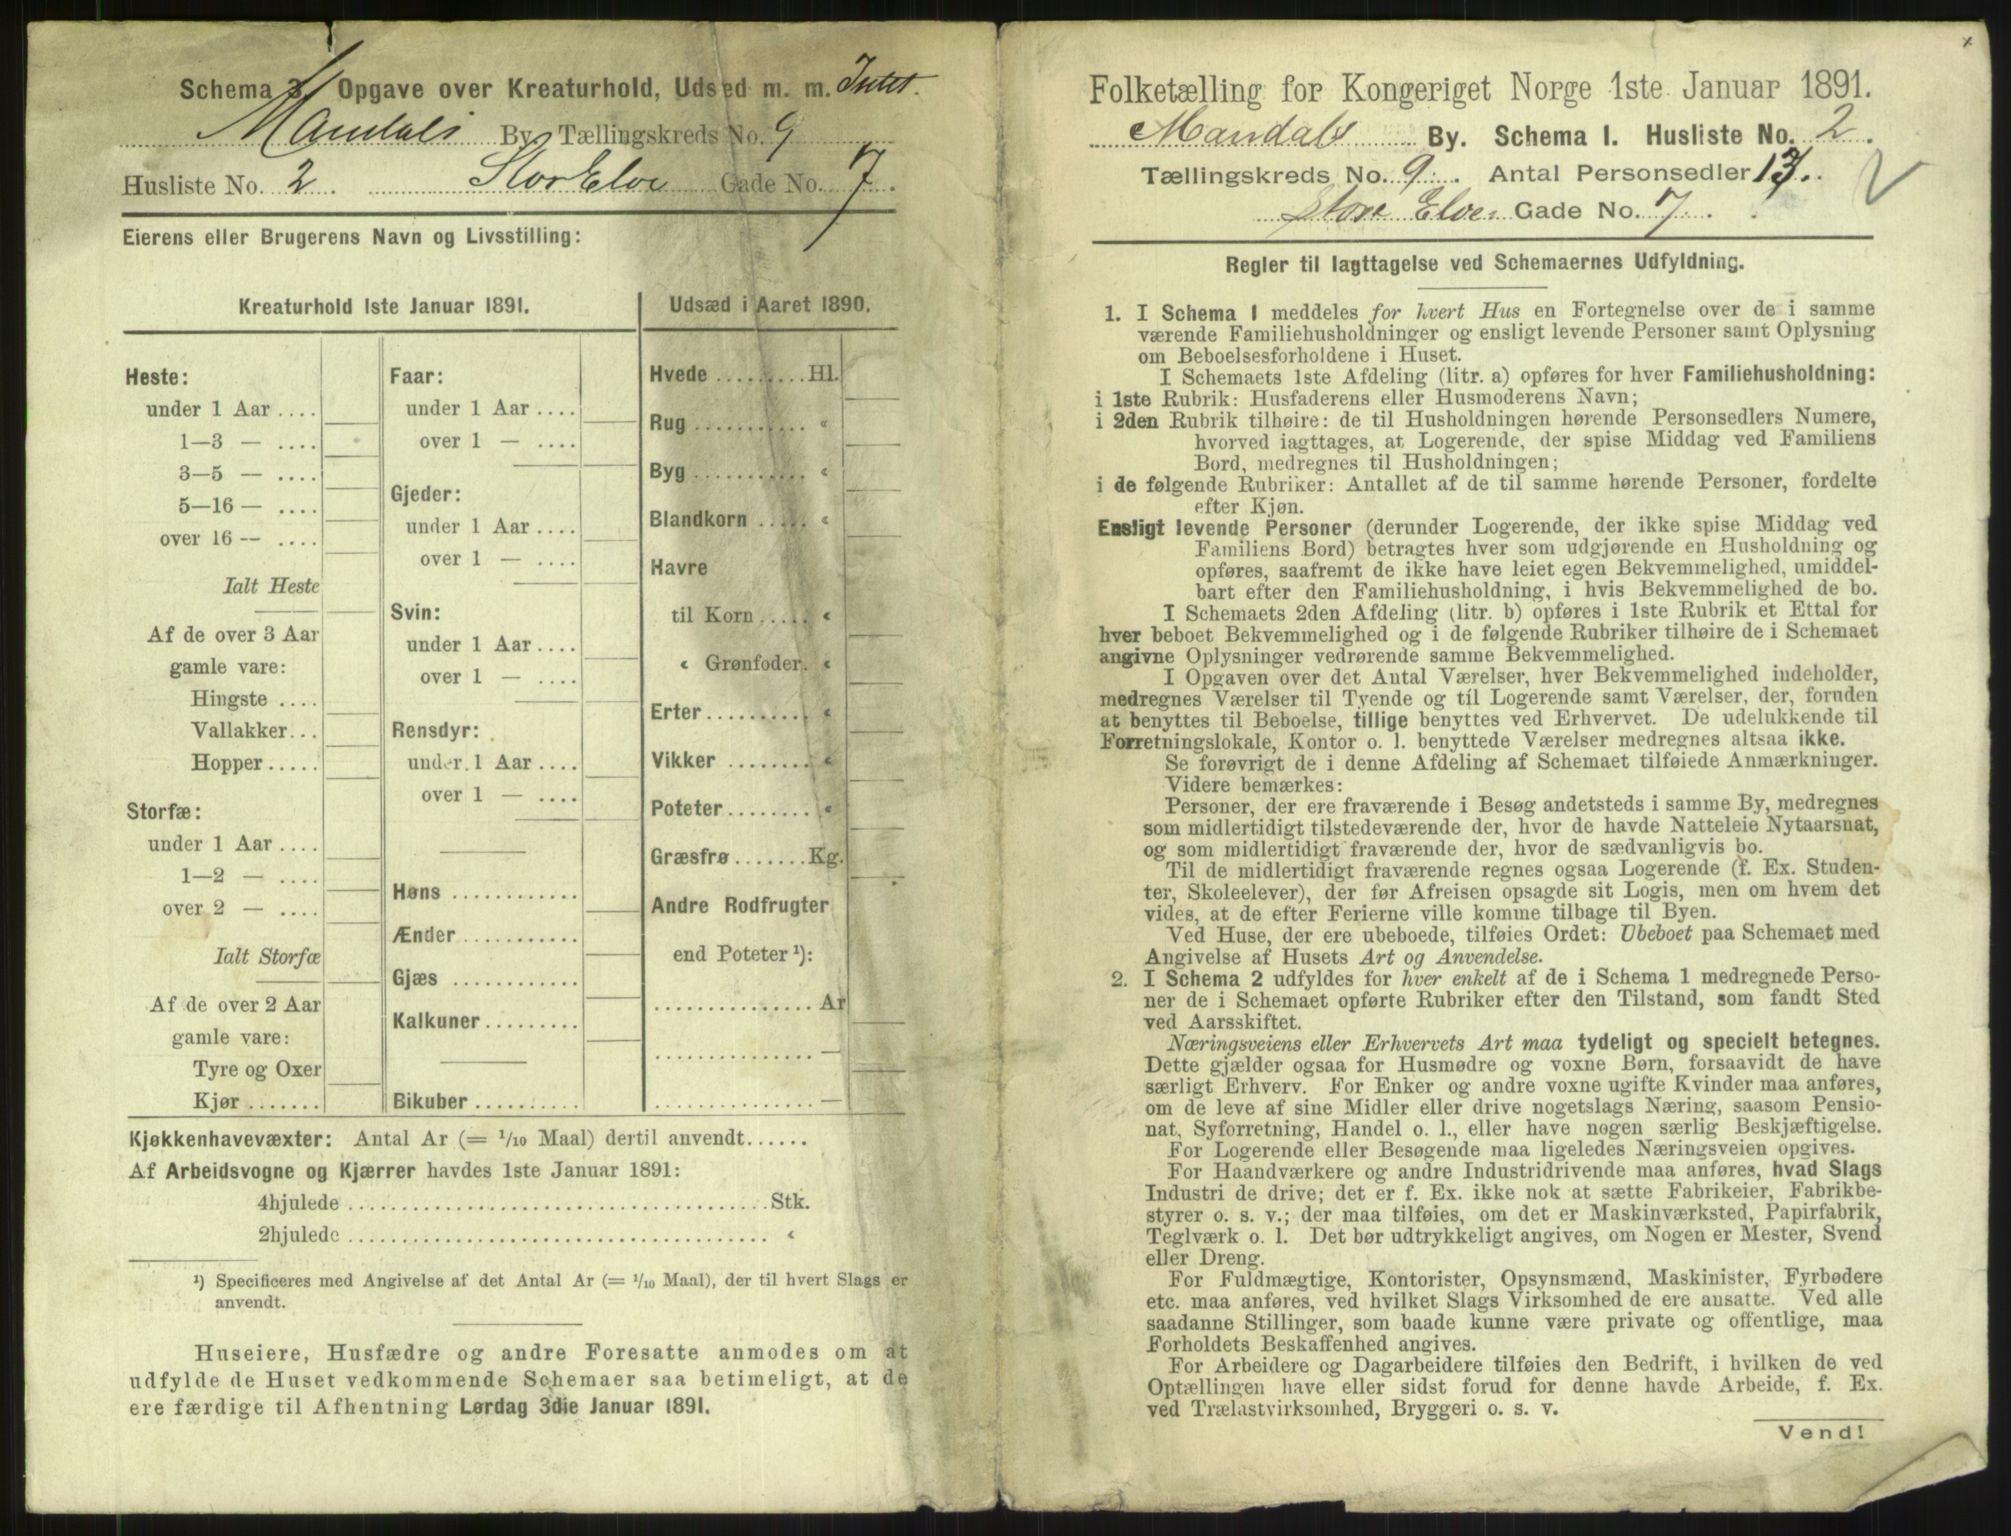 Schema 3. Opgave over Kreaturhold, Udsæd m. m. Intet.
Mandals By Tællingskreds No. 9
Husliste No. 2. Stor Elve Gade No. 7.
Eierens eller Brugerens Navn og Livsstilling:
Kreaturhold 1ste Januar 1891.
Heste:
under 1 Aar ....
1—3 — ....
3—5 — ....
5—16 — ....
over 16 — ....
Ialt Heste
Af de over 3 Aar
gamle vare:
Hingste ....
Vallakker...
Hopper.....
Storfæ:
under 1 Aar ....
1—2 — ....
over 2 — ....
Ialt Storfæ
Af de over 2 Aar
gamle vare:
Tyre og Oxer
Kjør .......
Faar:
under 1 Aar ....
over 1 — ....
Gjeder:
under 1 Aar ....
over 1 — ....
Svin:
under 1 Aar ....
over 1 — ....
Rensdyr:
under 1 Aar ....
over 1 — ....
Høns ............
Ænder...........
Gjæs ............
Kalkuner.........
Bikuber ..........
Udsæd i Aaret 1890.
Hvede .........Hl.
Rug ........... «
Byg ........... «
Blandkorn ..... «
Havre
til Korn ..... «
« Grønfoder. «
Erter.......... «
Vikker ........ «
Poteter........ «
Græsfrø .......Kg.
Andre Rodfrugter
end Poteter ¹):
............... Ar
............... —
............... —
Kjøkkenhavevæxter: Antal Ar (= 1/10 Maal) dertil anvendt......
Af Arbeidsvogne og Kjærrer havdes 1ste Januar 1891:
4hjulede ....................................Stk.
2hjulede .................................... «
¹) Specificeres med Angivelse af det Antal Ar (= 1/10 Maal), der til hvert Slags er
anvendt.
Huseiere, Husfædre og andre Foresatte anmodes om at
udfylde de Huset vedkommende Schemaer saa betimeligt, at de
ere færdige til Afhentning Lørdag 3die Januar 1891.
Folketælling for Kongeriget Norge 1ste Januar 1891.
Mandals By. Schema I. Husliste No. 2.
Tællingskreds No. 9. Antal Personsedler 13.
Store Elve Gade No. 7.
Regler til Iagttagelse ved Schemaernes Udfyldning.
1. I Schema I meddeles for hvert Hus en Fortegnelse over de i samme
værende Familiehusholdninger og ensligt levende Personer samt Oplysning
om Beboelsesforholdene i Huset.
I Schemaets 1ste Afdeling (litr. a) opføres for hver Familiehusholdning:
i 1ste Rubrik: Husfaderens eller Husmoderens Navn;
i 2den Rubrik tilhøire: de til Husholdningen hørende Personsedlers Numere,
hvorved iagttages, at Logerende, der spise Middag ved Familiens
Bord, medregnes til Husholdningen;
i de følgende Rubriker: Antallet af de til samme hørende Personer, fordelte
efter Kjøn.
Ensligt levende Personer (derunder Logerende, der ikke spise Middag ved
Familiens Bord) betragtes hver som udgjørende en Husholdning og
opføres, saafremt de ikke have leiet egen Bekvemmelighed, umiddel-
bart efter den Familiehusholdning, i hvis Bekvemmelighed de bo.
I Schemaets 2den Afdeling (litr. b) opføres i 1ste Rubrik et Ettal for
hver beboet Bekvemmelighed og i de følgende Rubriker tilhøire de i Schemaet
angivne Oplysninger vedrørende samme Bekvemmelighed.
I Opgaven over det Antal Værelser, hver Bekvemmelighed indeholder,
medregnes Værelser til Tyende og til Logerende samt Værelser, der, foruden
at benyttes til Beboelse, tillige benyttes ved Erhvervet. De udelukkende til
Forretningslokale, Kontor o. l. benyttede Værelser medregnes altsaa ikke.
Se forøvrigt de i denne Afdeling af Schemaet tilføiede Anmærkninger.
Videre bemærkes:
Personer, der ere fraværende i Besøg andetsteds i samme By, medregnes
som midlertidigt tilstedeværende der, hvor de havde Natteleie Nytaarsnat,
og som midlertidigt fraværende der, hvor de sædvanligvis bo.
Til de midlertidigt fraværende regnes ogsaa Logerende (f. Ex. Studen-
ter, Skoleelever), der før Afreisen opsagde sit Logis, men om hvem det
vides, at de efter Ferierne ville komme tilbage til Byen.
Ved Huse, der ere ubeboede, tilføies Ordet: Ubeboet paa Schemaet med
Angivelse af Husets Art og Anvendelse.
2. I Schema 2 udfyldes for hver enkelt af de i Schema 1 medregnede Perso-
ner de i Schemaet opførte Rubriker efter den Tilstand, som fandt Sted
ved Aarsskiftet.
Næringsveiens eller Erhvervets Art maa tydeligt og specielt betegnes.
Dette gjælder ogsaa for Husmødre og voxne Børn, forsaavidt de have
særligt Erhverv. For Enker og andre voxne ugifte Kvinder maa anføres,
om de leve af sine Midler eller drive nogetslags Næring, saasom Pensio-
nat, Syforretning, Handel o. l., eller have nogen særlig Beskjæftigelse.
For Logerende eller Besøgende maa ligeledes Næringsveien opgives.
For Haandværkere og andre Industridrivende maa anføres, hvad Slags
Industri de drive; det er f. Ex. ikke nok at sætte Fabrikeier, Fabrikbe-
styrer o. s. v.; der maa tilføies, om det er Maskinværksted, Papirfabrik,
Teglværk o. l. Det bør udtrykkeligt angives, om Nogen er Mester, Svend
eller Dreng.
For Fuldmægtige, Kontorister, Opsynsmænd, Maskinister, Fyrbødere
etc. maa anføres, ved hvilket Slags Virksomhed de ere ansatte. Ved alle
saadanne Stillinger, som baade kunne være private og offentlige, maa
Forholdets Beskaffenhed angives.
For Arbeidere og Dagarbeidere tilføies den Bedrift, i hvilken de ved
Optællingen have eller sidst forud for denne havde Arbeide, f. Ex.
ved Trælastvirksomhed, Bryggeri o. s. v.
Vend!